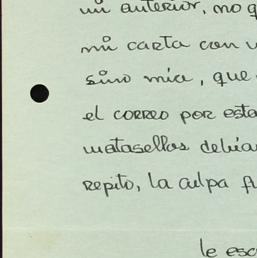 mi anterior, no q
mi carta con v
sino mía, que
el correo por esta
matasellos debía
repito, la culpa f
le esc